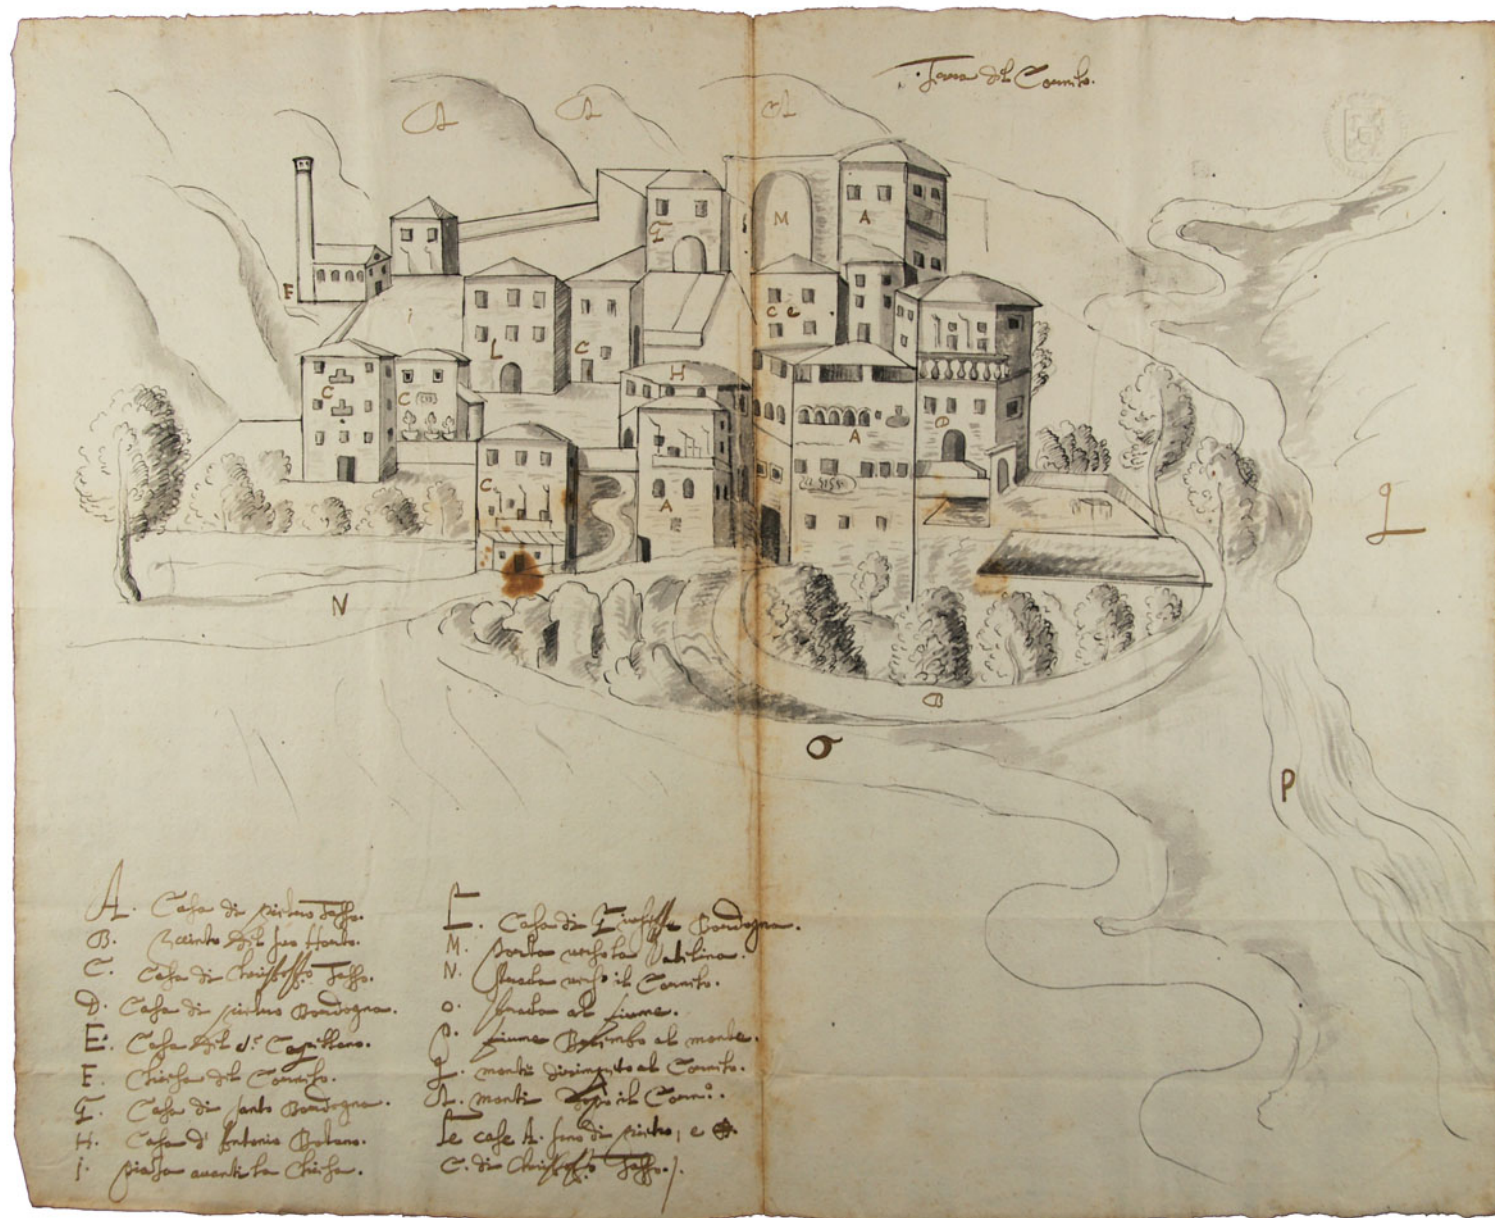 Terra del Cornello.
A
A
A
M
A
G
F
C e
L
C
H
C
C
A
e
C
A
N
B
Q
O
P
A. Casa di pietro Tasso.
B. Recinto del suo Horto.
C. Casa di Christoffo Tasso.
D. Casa di pietro Bordogna.
E. Casa del s.r Capellano.
F. Chiesa del Cornello.
G. Casa di santo Bordogna.
H. Casa d'Antonio Boteno.
i. piazza avanti la Chiesa.
L. Casa di Giuseppe Bordogna.
M. Porta verso la Valtelina.
N. strada verso il Cornello.
o. strada al fiume.
p. fiume Brembo al monte.
q. monti dirimpeto al Cornello.
R. monti dopo il Corno.
Le case A. sono di pietro, e
C. di Christoffo Tasso.